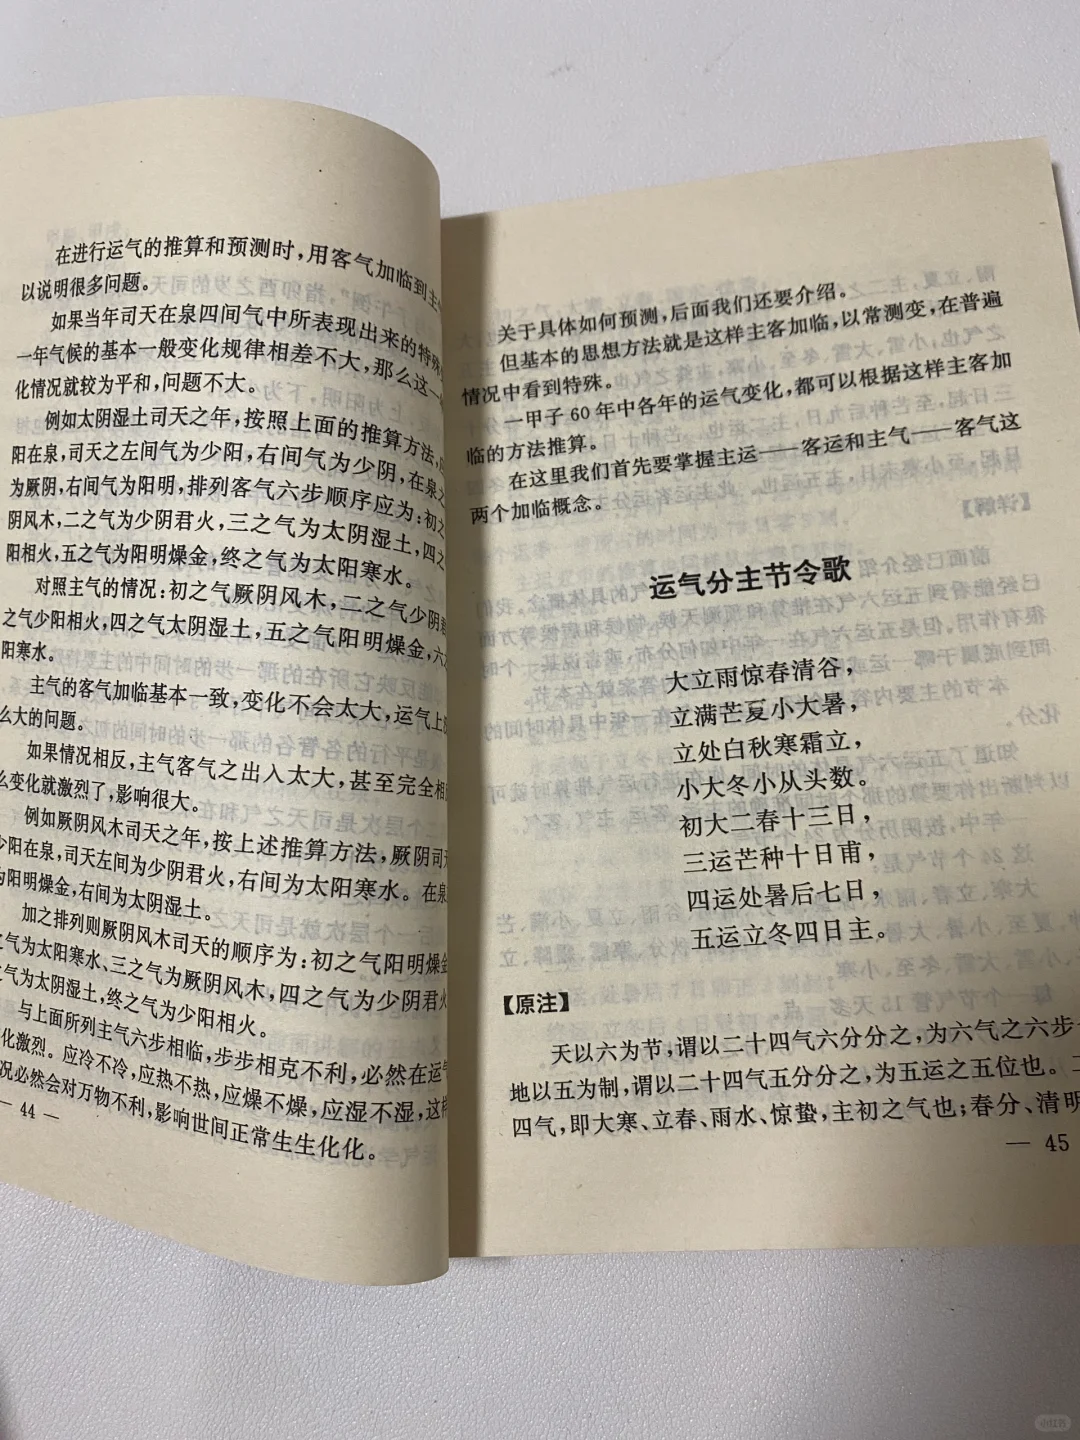 在进行运气的推算和预测时，用客气加临到主
以说明很多问题。
如果当年司天在泉四间气中所表现出来的特殊
一年气候的基本一般变化规律相差不大，那么这一
化情况就较为平和，问题不大。
例如太阴湿土司天之年，按照上面的推算方法，
阳在泉，司天之左间气为少阳，右间气为少阴，在泉之
为厥阴，右间气为阳明，排列客气六步顺序应为：初之
阴风木，二之气为少阴君火，三之气为太阴湿土，四之
阳相火，五之气为阳明燥金，终之气为太阳寒水。
对照主气的情况：初之气厥阴风木，二之气少阴
之气少阳相火，四之气太阴湿土，五之气阳明燥金，六
阳寒水。
主气的客气加临基本一致，变化不会太大，运气上
么大的问题。
如果情况相反，主气客气之出入太大，甚至完全相
么变化就激烈了，影响很大。
例如厥阴风木司天之年，按上述推算方法，厥阴司
少阳在泉，司天左间为少阴君火，右间为太阳寒水。在泉
为阳明燥金，右间为太阴湿土。
加之排列则厥阴风木司天的顺序为：初之气阳明燥金
之气为太阳寒水、三之气为厥阴风木，四之气为少阴君火
之气为太阴湿土，终之气为少阳相火。
与上面所列主气六步相临，步步相克不利，必然在运
化激烈。应冷不冷，应热不热，应燥不燥，应湿不湿，这
况必然会对万物不利，影响世间正常生生化化。
— 44 —
关于具体如何预测，后面我们还要介绍。
但基本的思想方法就是这样主客加临，以常测变，在普遍
情况中看到特殊。
一甲子60年中各年的运气变化，都可以根据这样主客加
临的方法推算。
在这里我们首先要掌握主运——客运和主气——客气这
两个加临概念。
运气分主节令歌
大立雨惊春清谷，
立满芒夏小大暑，
立处白秋寒霜立，
小大冬小从头数。
初大二春十三日，
三运芒种十日甫，
四运处暑后七日，
五运立冬四日主。
【原注】
天以六为节，谓以二十四气六分分之，为六气之六步
地以五为制，谓以二十四气五分分之，为五运之五位也。
四气，即大寒、立春、雨水、惊蛰，主初之气也；春分、清明
— 45
小红书